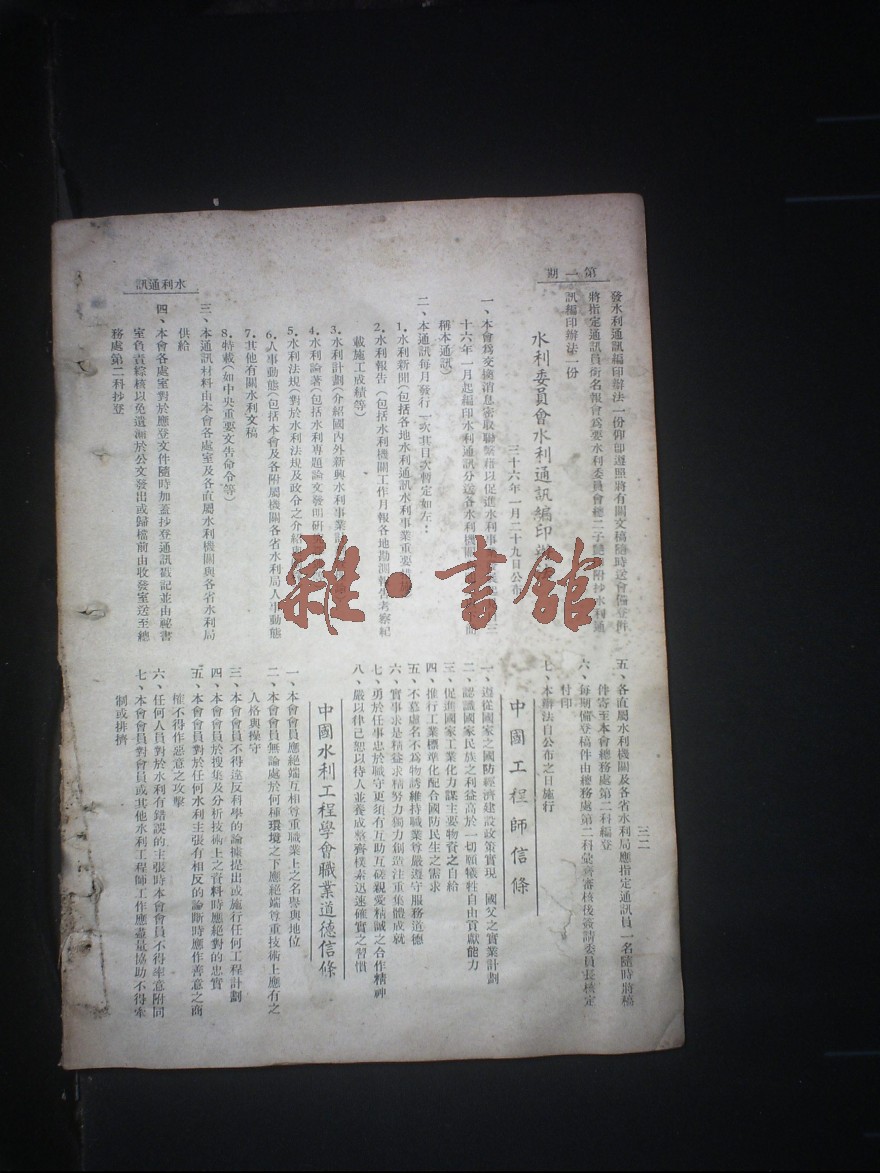 第一期
水利通訊
三二
發水利通訊編印辦法一份仰即遵照將有關文稿隨時送會備登併
將指定通訊員銜名報會為要水利委員會總二子 附抄水利通
訊編印辦法一份
水利委員會水利通訊編印
三十六年一月二十九日公布
一、本會為交換消息密取聯繫藉以促進水利事
十六年一月起編印水利通訊分送各水利機
稱本通訊）
二、本通訊每月發行一次其目次暫定如左：
1.水利新聞（包括各地水利通訊水利事業重要
2.水利報告（包括水利機關工作月報各地勘測報告考察紀
載施工成績等）
3.水利計劃（介紹國內外新興水利事業
4.水利論著（包括水利專題論文發明研
5.水利法規（對於水利法規及政令之介紹
6.人事動態（包括本會及各附屬機關各省水利局人事動態
7.其他有關水利文稿
8.特載（如中央重要文告命令等）
三、本通訊材料由本會各處室及各直屬水利機關與各省水利局
供給
四、本會各處室對於應登文件隨時加蓋抄登通訊戳記並由祕書
室負責綜核以免遺漏於公文發出或歸檔前由收發室送至總
務處第二科抄登
五、各直屬水利機關及各省水利局應指定通訊員一名隨時將稿
件寄至本會總務處第二科編登
六、每期備登稿件由總務處第二科彙齊審核後簽請委員長核定
付印
七、本辦法自公布之日施行
中國工程師信條
一、遵從國家之國防經濟建設政策實現 國父之實業計劃
二、認識國家民族之利益高於一切願犧牲自由貢獻能力
三、促進國家工業化力謀主要物資之自給
四、推行工業標準化配合國防民生之需求
五、不慕虛名不為物誘維持職業尊嚴遵守服務道德
六、實事求是精益求精努力獨力創造注重集體成就
七、勇於任事忠於職守更須有互助互磋親愛精誠之合作精神
八、嚴以律己恕以待人並養成整齊樸素迅速確實之習慣
中國水利工程學會職業道德信條
一、本會會員應絕端互相尊重職業上之名譽與地位
二、本會會員無論處於何種環境之下應絕端尊重技術上應有之
人格與操守
三、本會會員不得違反科學的論據提出或施行任何工程計劃
四、本會會員於搜集及分析技術上之資料時應絕對的忠實
五、本會會員對於任何水利主張有相反的論斷時應作善意之商
榷不得作惡意之攻擊
六、任何人員對於水利有錯誤的主張時本會會員不得率意附同
七、本會會員對會員或其他水利工程師工作應盡量協助不得牽
制或排擠
雜·書館